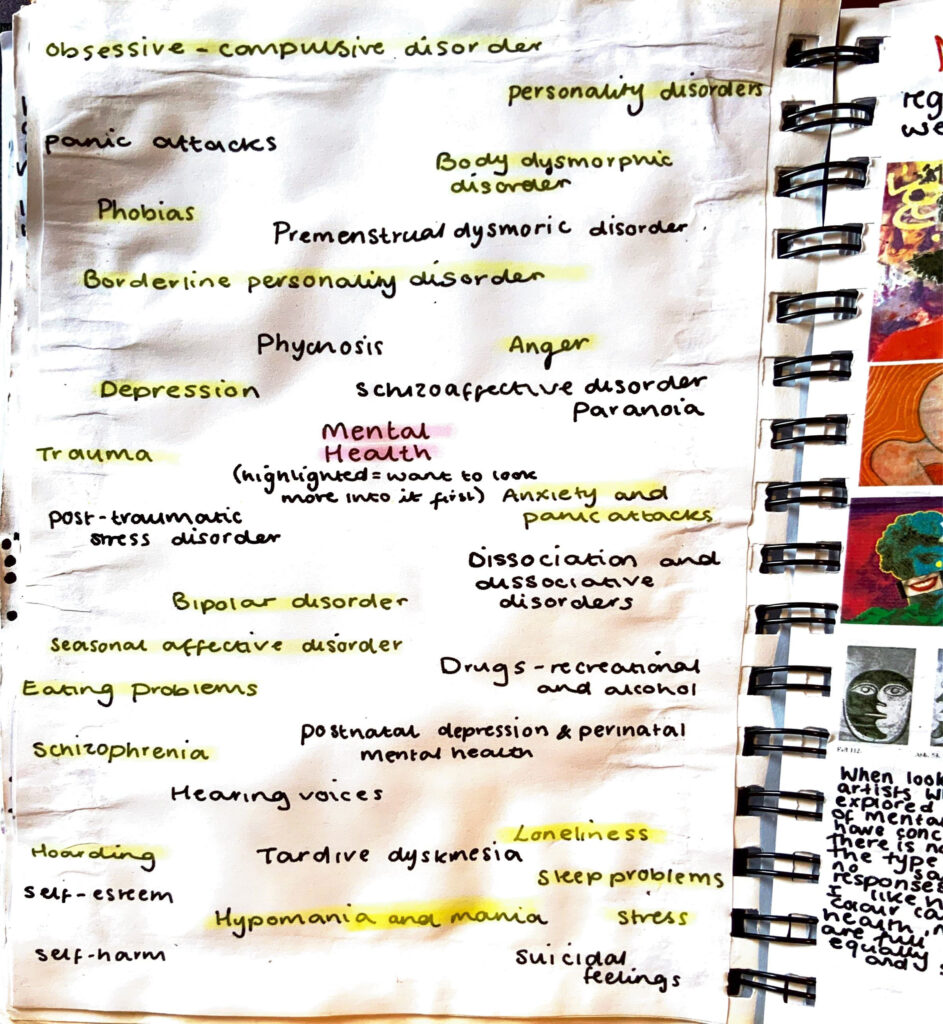 Obsessive - compulsive disorder
personality disorders
panic attacks
Body dysmorphic
disorder
Phobias
Premenstrual dysmoric disorder
Borderline personality disorder
Phycnosis
Anger
Depression
Schizoaffective disorder
Paranoia
Mental
Health
Trauma
(highlighted = want to look
more into it first)
Anxiety and
panic attacks
post-traumatic
stress disorder
Dissociation and
dissociative
disorders
Bipolar disorder
Seasonal affective disorder
Drugs - recreational
and alcohol
Eating problems
Postnatal depression & perinatal
mental health
Schizophrenia
Hearing voices
Loneliness
Hoarding
Tardive dyskinesia
Sleep problems
self-esteem
Hypomania and mania
Stress
self-harm
Suicidal
feelings
reg
we
When look
artists w
explored
of mental
have conc
there is no
the type
no
responses
I like h
colour ca
health, n
are full
equally
and s